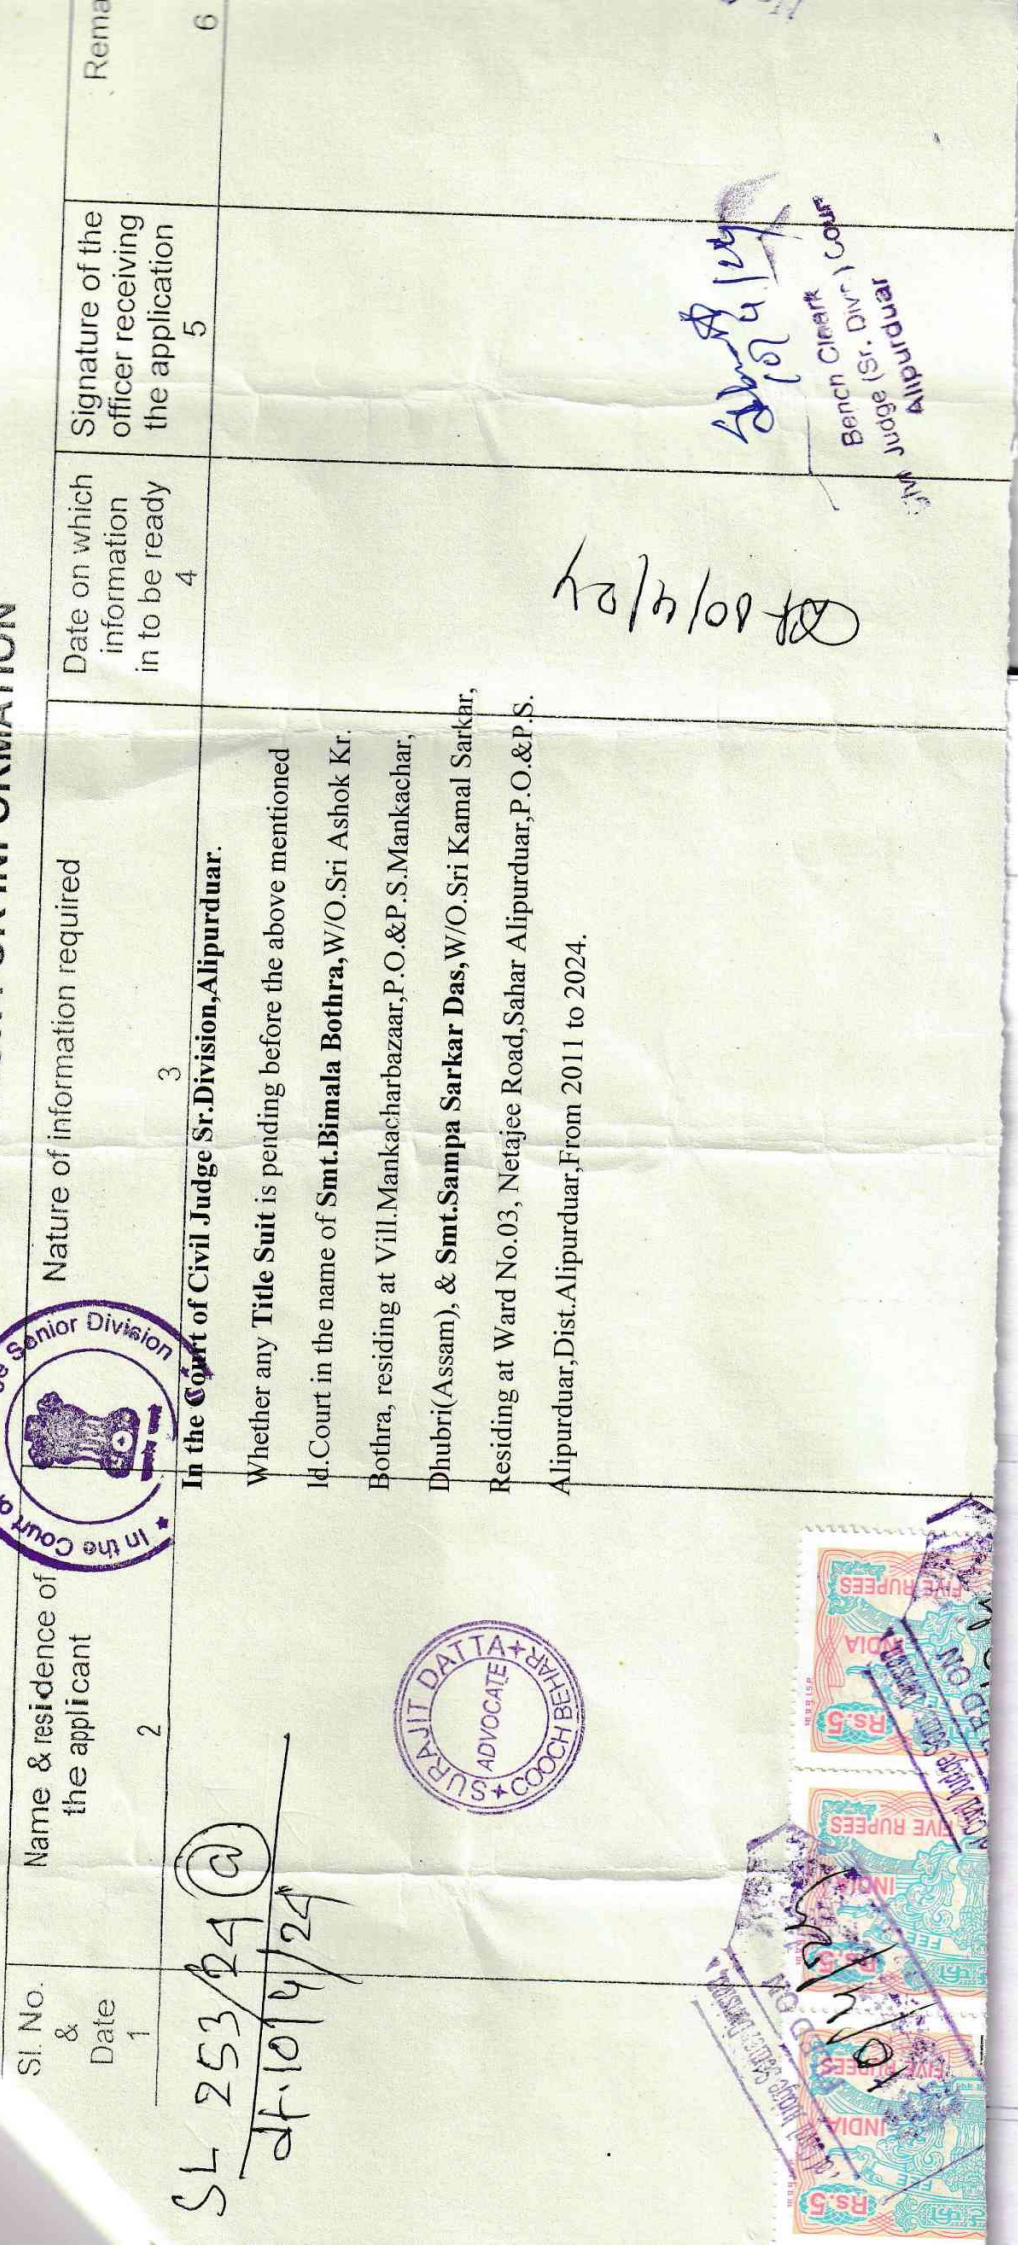 FOR INFORMATION
Sl. No.
&
Date
1
Name & residence of
the applicant
2
Nature of information required
3
Date on which
information
in to be ready
4
Signature of the
officer receiving
the application
5
Rema
6
SL 253/24 (a)
dt. 10/4/24
SURAJIT DATTA
ADVOCATE
COOCH BEHAR
Senior Division
In the Court of
In the Court of Civil Judge Sr.Division,Alipurduar.
Whether any Title Suit is pending before the above mentioned
ld.Court in the name of Smt.Bimala Bothra,W/O.Sri Ashok Kr.
Bothra, residing at Vill.Mankacharbazaar,P.O.&P.S.Mankachar,
Dhubri(Assam), & Smt.Sampa Sarkar Das,W/O.Sri Kamal Sarkar,
Residing at Ward No.03, Netajee Road,Sahar Alipurduar,P.O.&P.S.
Alipurduar,Dist.Alipurduar,From 2011 to 2024.
10/4/24
10/4/24
Bench Clerk
Judge (Sr. Divn) Cour
Alipurduar
Rs.5
INDIA
FIVE RUPEES
Rs.5
INDIA
FEE
FIVE RUPEES
Rs.5
INDIA
FIVE RUPEES
10/4/24